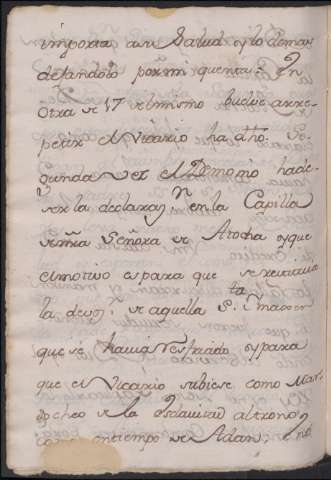 importa a su Salud, y lo demas
dejandolo por mi quenta: En
otra de 17 del mismo buelve a rre
petir el Vicario ha dho. Se
gunda vez el Demonio ha de
ser la declaraz.n en la Capilla
de nra Señora de Atocha y que
el motivo es para que se
la devoz.n de aquella S.ta Ymagen
que se havia resfriado y para
que el Vicario subiese como Mar
docheo de la esclavitud al trono, y
como en tiempo de Adan, e no